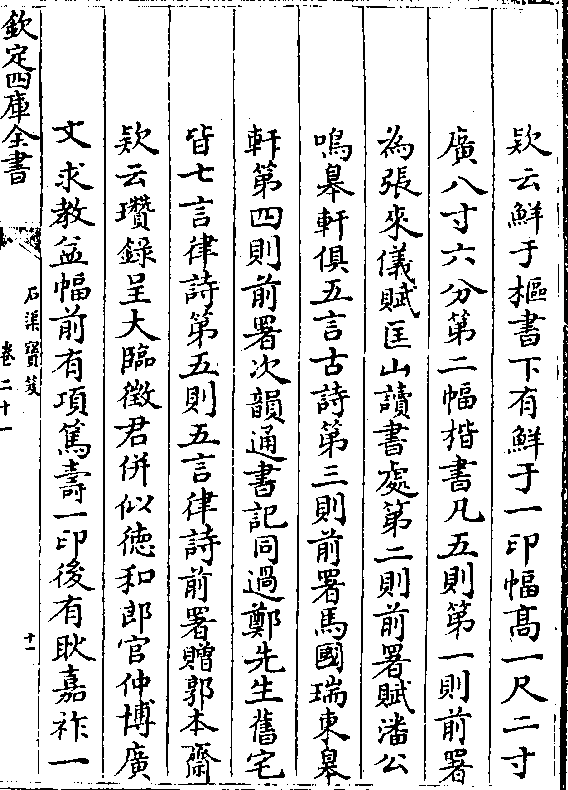 款云鮮于樞書下有鮮于一印幅髙一尺二寸
廣八寸六分第二幅楷書凡五則第一則前署
為張來儀賦匡山讀書處第二則前署賦潘公
鳴皋軒俱五言古詩第三則前署馬國瑞東皋
軒第四則前署次韻通書記同過鄭先生舊宅
皆七言律詩第五則五言律詩前署贈郭本齋
欵云瓚錄呈大臨徵君併似徳和郎官仲博廣
文求教益幅前有項篤壽一印後有耿嘉祚一
欽定四庫全書
石渠寳笈
卷二十一
十一